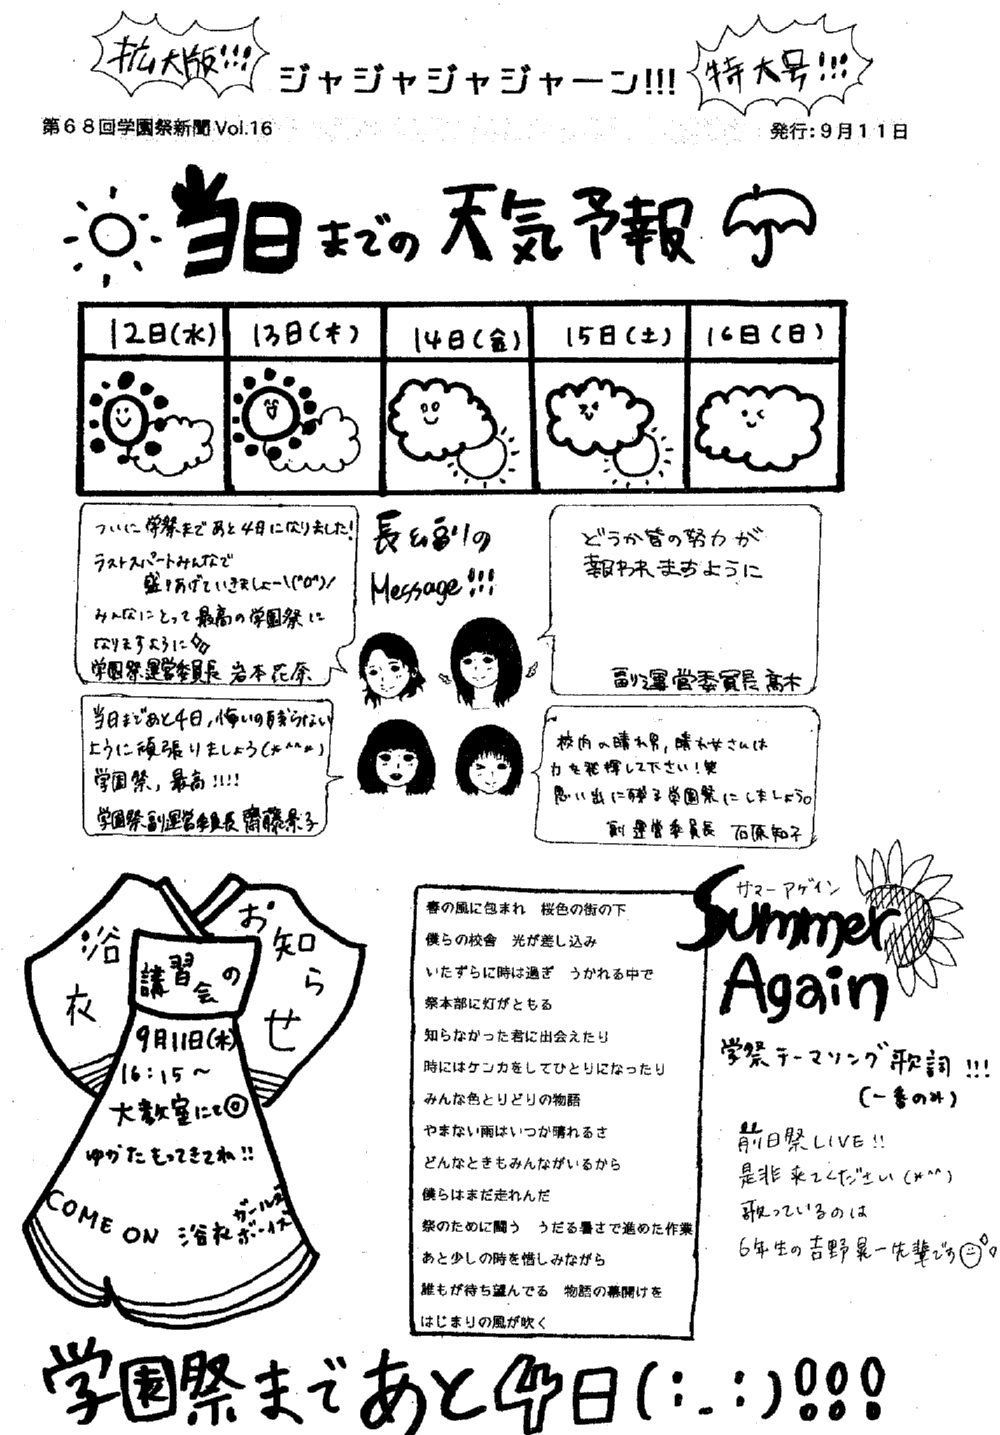 拡大版!!!
ジャジャジャジャーン!!!
特大号!!!
第68回学園祭新聞 Vol.16
発行:9月11日
当日までの天気予報
12日(水) 13日(木) 14日(金) 15日(土) 16日(日)
ついに学祭まであと4日になりました!
ラストスパートみんなで
盛りあげていきましょー\(^o^)/
みんなにとって最高の学園祭に
なりますように
学園祭運営委員長 岩本花奈
長&副りの
Message!!!
どうか皆の努力が
報われますように
副運営委員長 高木
当日まであと4日,悔いの残らない
ように頑張りましょう(*^^*)
学園祭,最高!!!!
学園祭副運営委員長 齋藤景子
校内の晴れ男,晴れ女さんは
力を発揮して下さい!笑
思い出に残る学園祭にしましょう。
副運営委員長 石原知子
浴衣
講習会の
お知らせ
9月11日(水)
16:15~
大教室にて◎
ゆかたもってきてね!!
COME ON 浴衣ガールズ
ボーイズ
春の風に包まれ 桜色の街の下
僕らの校舎 光が差し込み
いたずらに時は過ぎ うかれる中で
祭本部に灯がともる
知らなかった君に出会えたり
時にはケンカをしてひとりになったり
みんな色とりどりの物語
やまない雨はいつか晴れるさ
どんなときもみんながいるから
僕らはまだ走れんだ
祭のために闘う うだる暑さで進めた作業
あと少しの時を惜しみながら
誰もが待ち望んでる 物語の幕開けを
はじまりの風が吹く
サマーアゲイン
Summer
Again
学祭テーマソング歌詞!!!
(一番のみ)
前日祭LIVE!!
是非来てください(*^^)
歌っているのは
6年生の吉野晃一先輩です
学園祭まであと4日(:_:)!!!